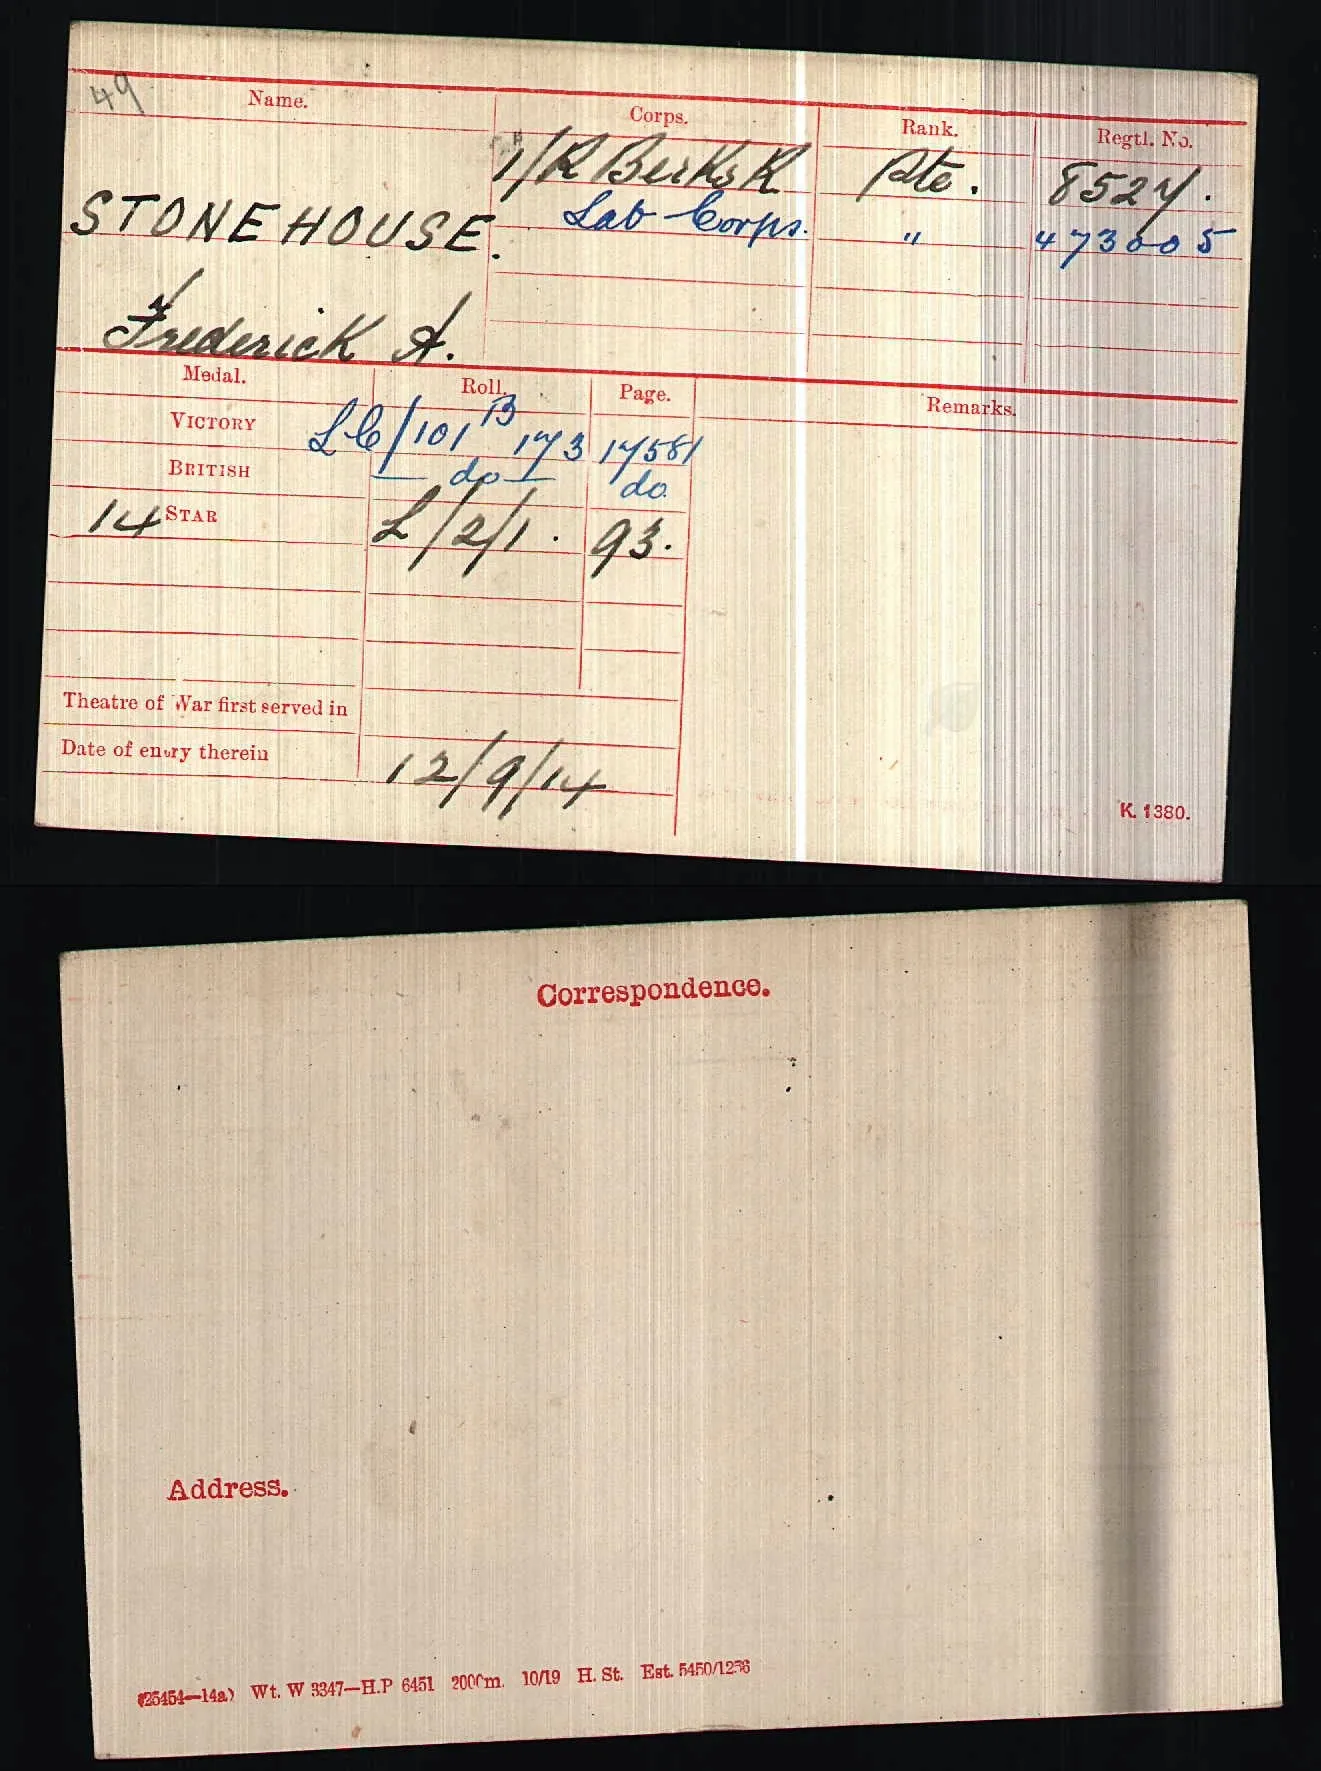 49
Name. Corps. Rank. Regtl. No.
1/R Berks R Pte. 8527.
STONEHOUSE. Lab Corps. " 473005
Frederick A.
Medal. Roll. Page. Remarks.
VICTORY LC/101 B 173 17581
BRITISH — do — do.
14 STAR L/2/1. 93.
Theatre of War first served in
Date of entry therein 12/9/14
K. 1380.
Correspondence.
Address.
(25454—14a) Wt. W 3347—H.P 6451 2000m. 10/19 H. St. Est. 5450/1256